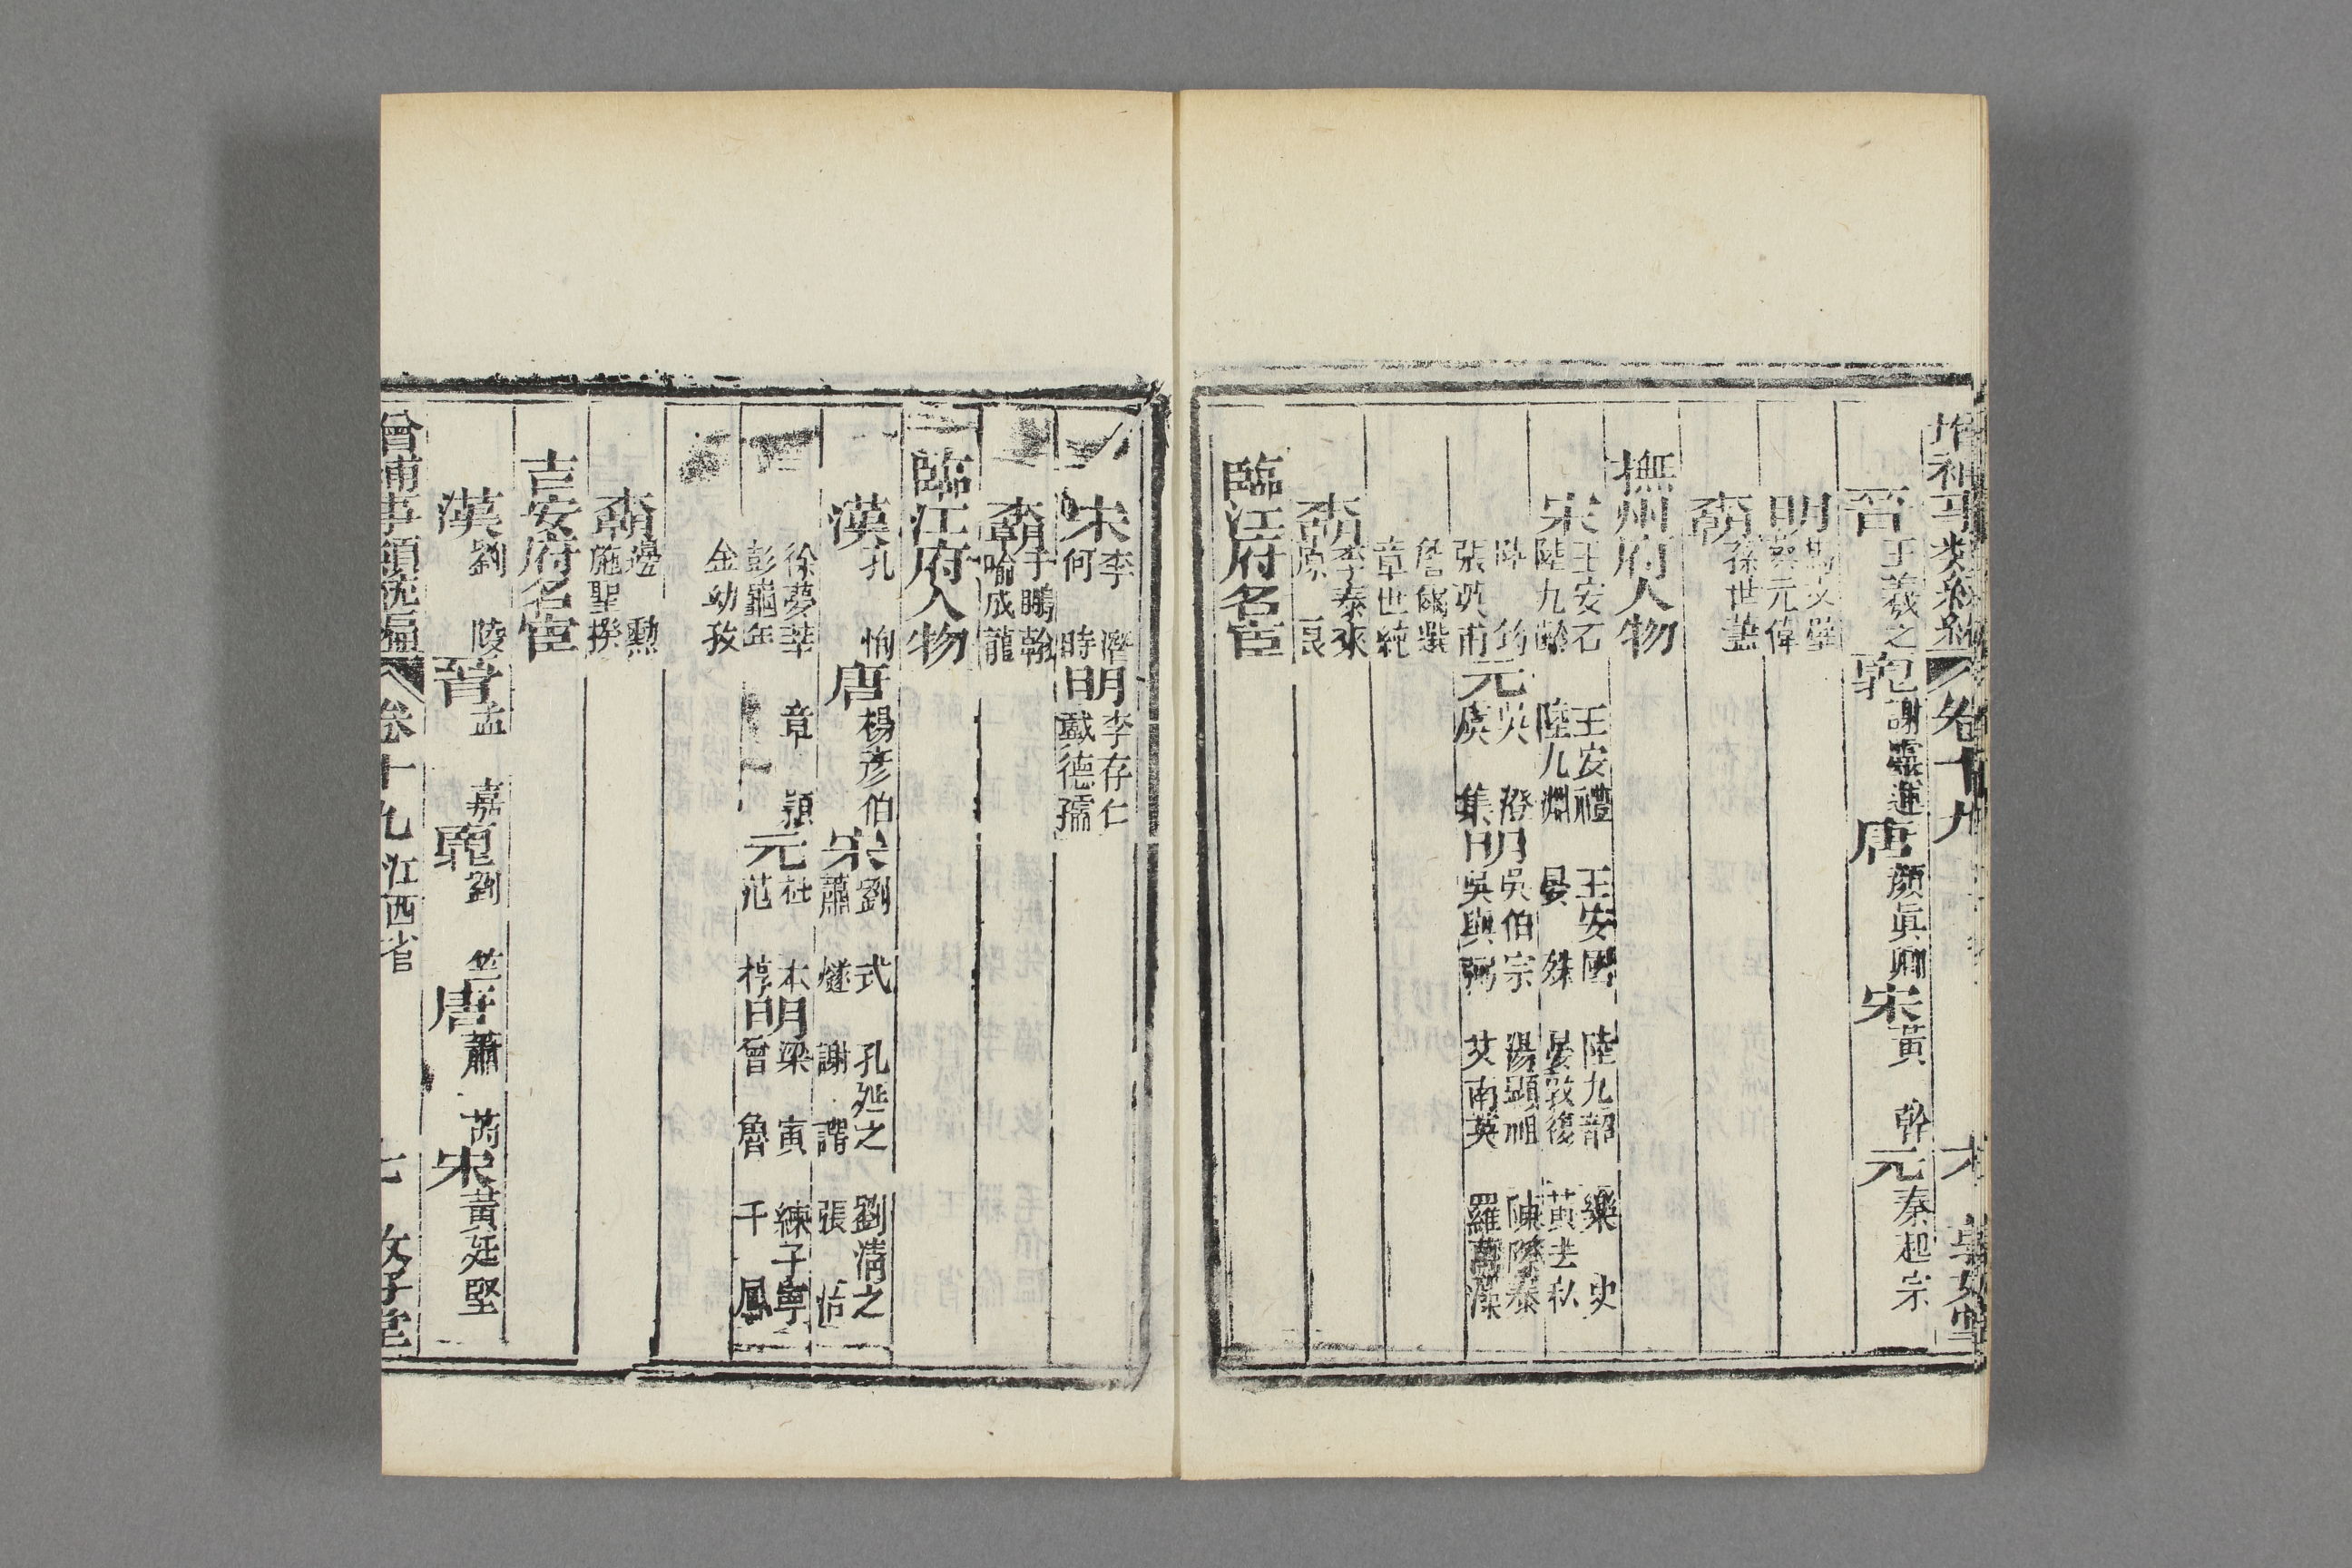 增補事類統編 卷十九
晉 王羲之 謝靈運 唐 顏眞卿 宋 黃榦 元 秦起宗
明 蔡元偉
孫世蓋
撫州府人物
宋 王安石 王安禮 王安國 陸九韶 樂史
陸九齡 陸九淵 晏殊 晏敦復 黃去私
元 吳澄 明 吳伯宗 湯顯祖 陳際泰
張 甫 虞集 吳與弼 艾南英 羅萬藻
章世純
李泰來
臨江府名宦
宋 李潛 明 李存仁
何時 戴德孺
于鵬翰
喻成龍
臨江府人物
漢 孔恂 唐 楊彥伯 宋 劉式 孔延之 劉淸之
蕭燧 謝諤 張洽
徐夢莘 章穎 元 杜本 明 梁寅 練子寧
彭龜年 范梈 曾魯 千鳳
金幼孜
邊勳
施聖揆
吉安府名宦
漢 劉陵 晉 孟嘉 劉竺 唐 蕭芮 宋 黃廷堅
增補事類統編 卷十九 江西省 七 敬子堂